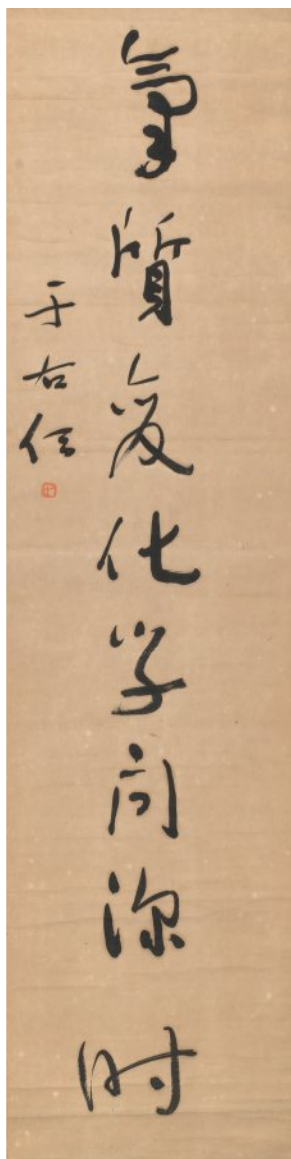 氣質變化學問深時
于右任